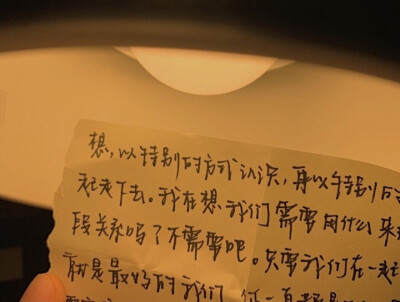 想,以特别的方式认识,再以特别的
起走下去。我在想我们需要用什么来
段关系吗?不需要吧。只要我们在一起
就是最好的我们